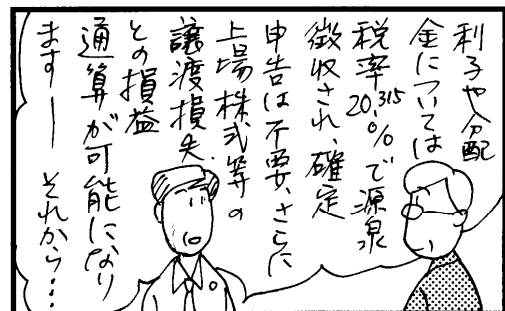 利子や分配
金については
税率20.315%で源泉
徴収され、確定
申告は不要、さらに
上場株式等の
譲渡損失
との損益
通算が可能になり
ますー それから…